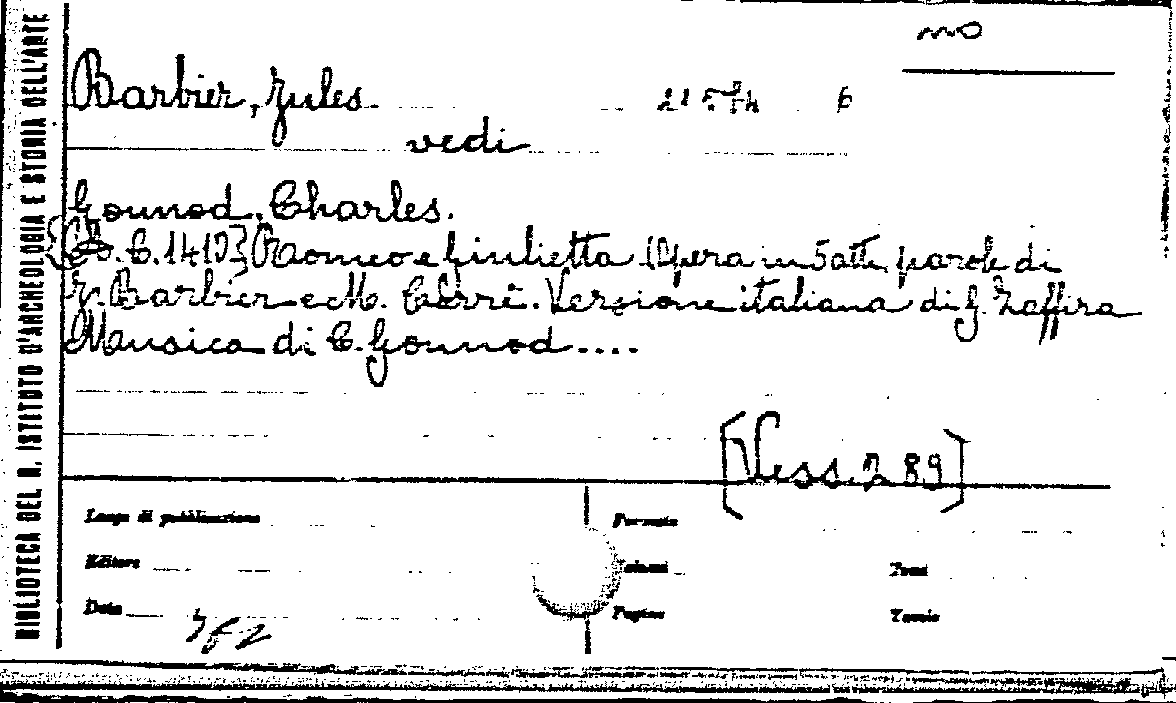 BIBLIOTECA DEL R. ISTITUTO D'ARCHEOLOGIA E STORIA DELL'ARTE
no
Barbier, Jules
6
vedi
Gounod, Charles.
Romeo e Giulietta (Opera in 5 atti, parole di
J. Barbier e M. Carré. Versione italiana di G. Zaffira
Musica di C. Gounod....
[Vess. 289]
Luogo di pubblicazione
Formato
Editore
Volumi
Tomi
Data
Pagine
Tavole